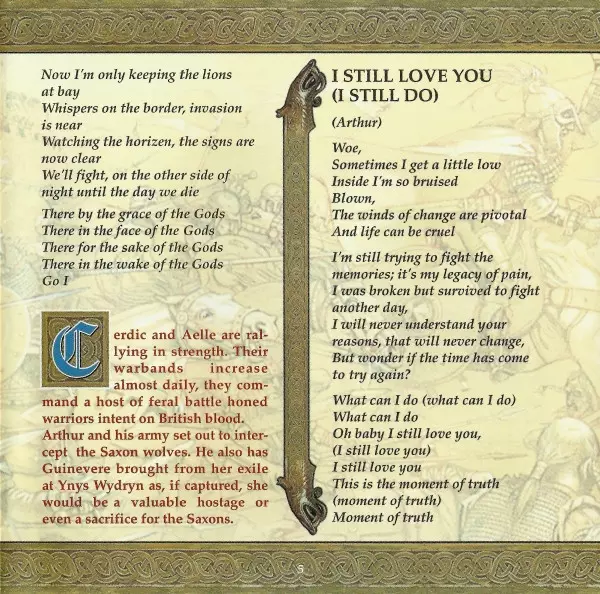 Now I'm only keeping the lions
at bay
Whispers on the border, invasion
is near
Watching the horizen, the signs are
now clear
We'll fight, on the other side of
night until the day we die
There by the grace of the Gods
There in the face of the Gods
There for the sake of the Gods
There in the wake of the Gods
Go I
Cerdic and Aelle are ral-
lying in strength. Their
warbands increase
almost daily, they com-
mand a host of feral battle honed
warriors intent on British blood.
Arthur and his army set out to inter-
cept the Saxon wolves. He also has
Guinevere brought from her exile
at Ynys Wydryn as, if captured, she
would be a valuable hostage or
even a sacrifice for the Saxons.
I STILL LOVE YOU
(I STILL DO)
(Arthur)
Woe,
Sometimes I get a little low
Inside I'm so bruised
Blown,
The winds of change are pivotal
And life can be cruel
I'm still trying to fight the
memories; it's my legacy of pain,
I was broken but survived to fight
another day,
I will never understand your
reasons, that will never change,
But wonder if the time has come
to try again?
What can I do (what can I do)
What can I do
Oh baby I still love you,
(I still love you)
I still love you
This is the moment of truth
(moment of truth)
Moment of truth